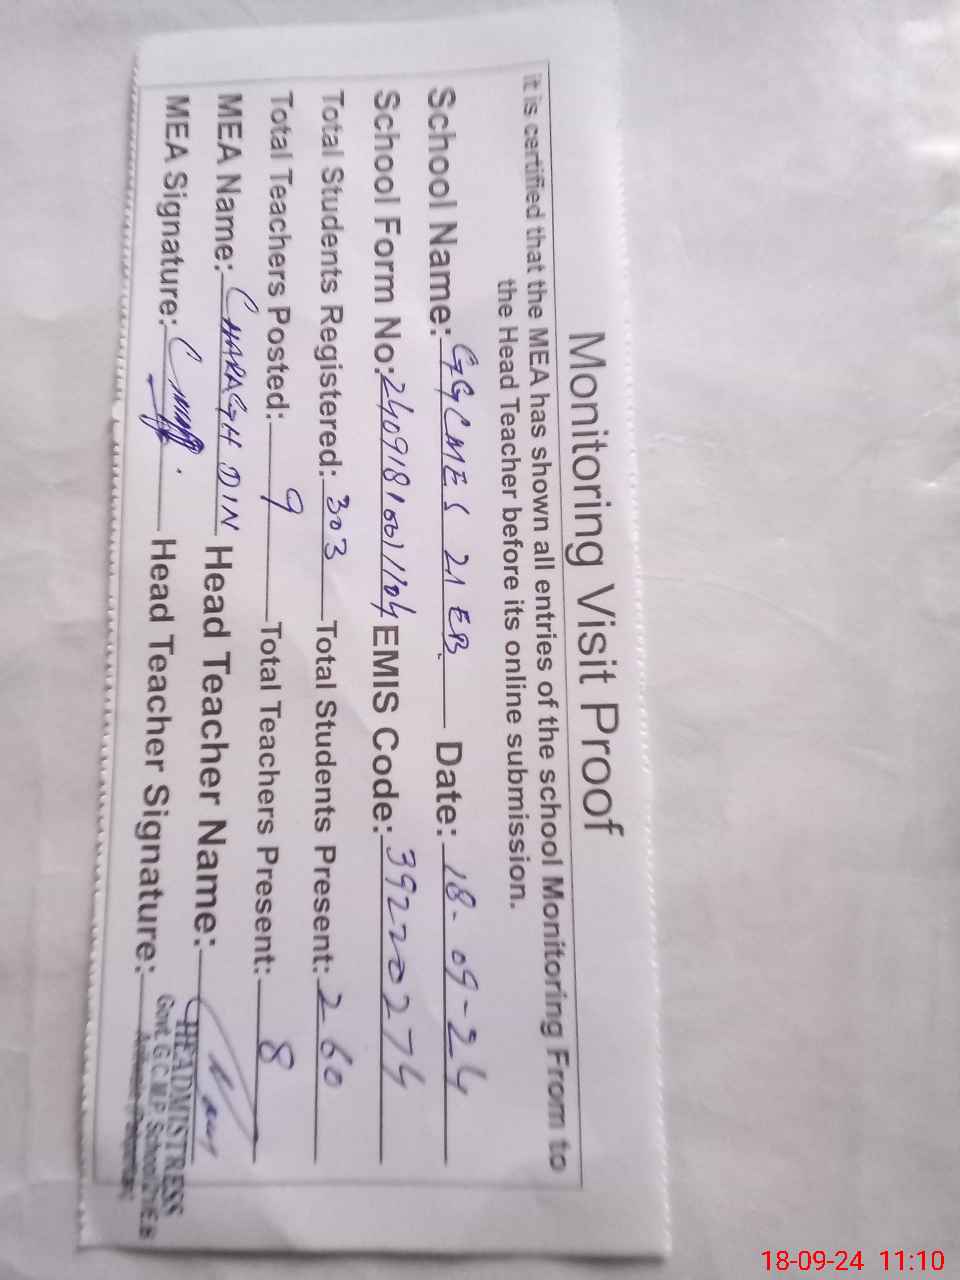 Monitoring Visit Proof
it is certified that the MEA has shown all entries of the school Monitoring From to
the Head Teacher before its online submission.
School Name: GGCMES 21 EB Date: 18-09-24
School Form No: EMIS Code: 39220274
Total Students Registered: 303 Total Students Present: 260
Total Teachers Posted: 9 Total Teachers Present: 8
MEA Name: CHARAGH DIN Head Teacher Name:
MEA Signature: Head Teacher Signature:
HEADMISTRESS
Govt. G.C.M.P. School 21/E.B
18-09-24 11:10